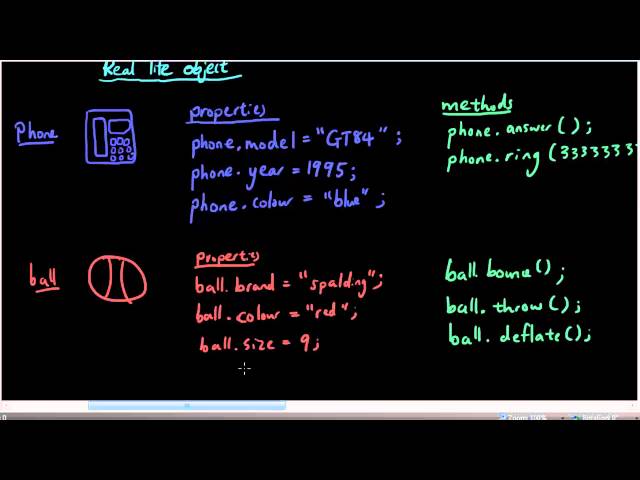 Real life object
Phone
properties
phone.model = "GT84" ;
phone.year = 1995;
phone.colour = "blue" ;
methods
phone.answer();
phone.ring (33333333
ball
Properties
ball.brand = "spalding";
ball.colour = "red";
ball.size = 9;
ball bounce();
ball.throw();
ball.deflate();
Zoom 100%